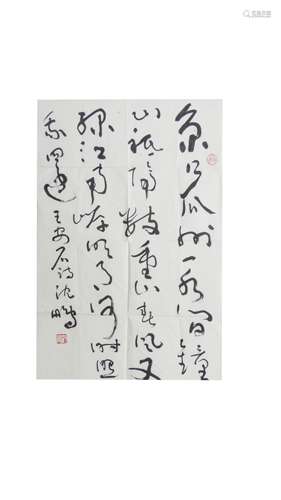 京口瓜洲一水间鐘
山祗隔数重山春风又
绿江南岸明月何时照
我還 王安石诗沈鹏